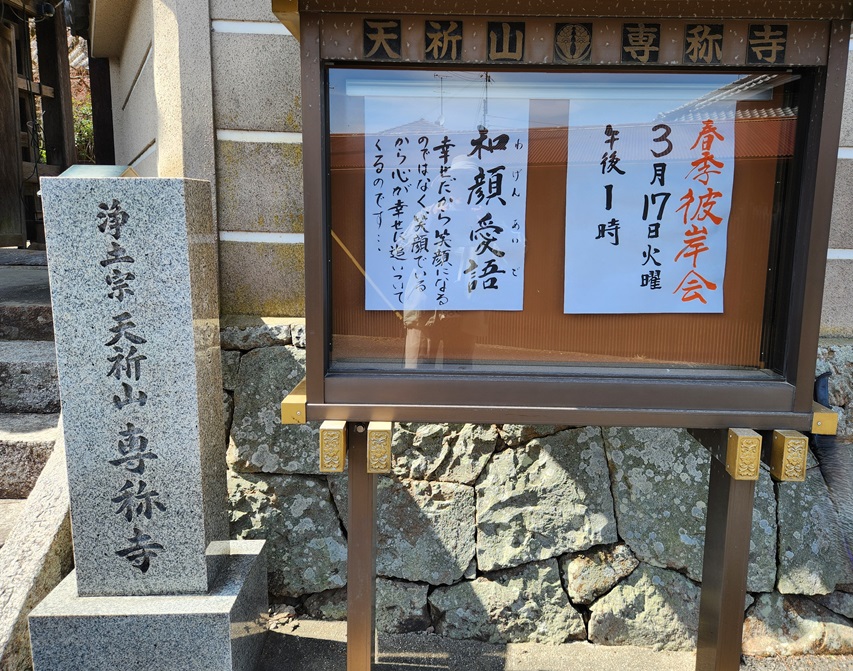 天祈山 専称寺
春季彼岸会
3月17日火曜
午後1時
和顔愛語
わげんあいご
幸せだから笑顔になる
のではなく笑顔でいる
から心が幸せに追いついて
くるのです…
浄土宗 天祈山 専称寺